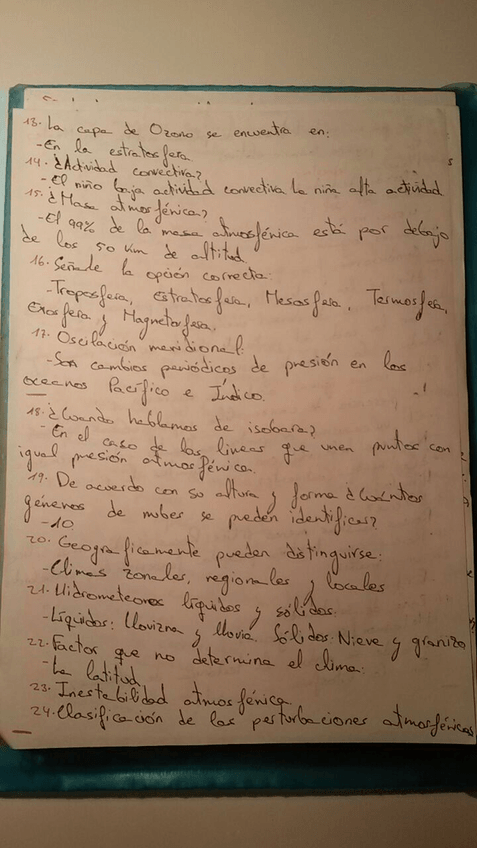 13. La capa de Ozono se encuentra en:
-En la estratosfera.
14. ¿Actividad convectiva?
-El niño baja actividad convectiva La niña alta actividad
15. ¿Masa atmosférica?
-El 99% de la masa atmosférica está por debajo
de los 50 Km de altitud.
16. Señale la opción correcta:
-Troposfera, Estratosfera, Mesosfera, Termosfera,
Exosfera y Magnetosfera.
17. Oscilación meridional:
-Son cambios periódicos de presión en los
oceanos Pacífico e Índico.
18. ¿Cuando hablamos de isobara?
-En el caso de las lineas que unen puntos con
igual presión atmosférica.
19. De acuerdo con su altura y forma ¿Cuántos
géneros de nubes se pueden identificar?
-10
20. Geograficamente pueden distinguirse:
-Climas zonales, regionales y locales
21. Hidrometeoros líquidos y sólidos.
-Líquidos: Llovizna y lluvia Sólidos: Nieve y granizo
22. Factor que no determina el clima:
-La latitud
23. Inestabilidad atmosférica
24. Clasificación de las perturbaciones atmosféricas